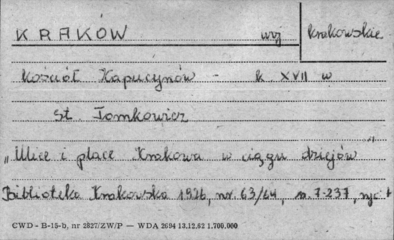 KRAKÓW woj krakowskie
Kościół Kapucynów - k XVII w
St Tomkowicz
„Ulice i place Krakowa w ciągu dziejów"
Biblioteka Krakowska 1926, nr. 63/64, s. 7-237, ryc.
CWD - B-15-b, nr 2827/ZW/P — WDA 2694 13.12.62 1.700.000